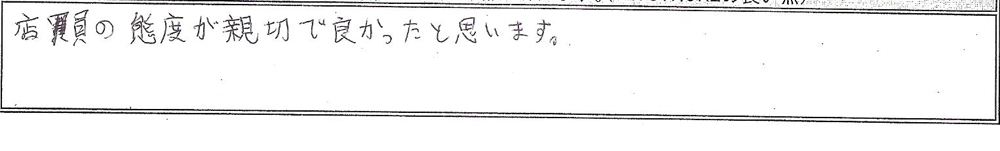 店員の態度が親切で良かったと思います。